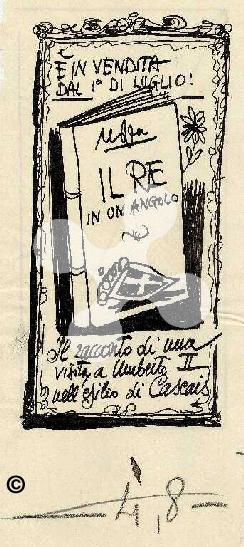 È IN VENDITA
DAL 1° DI LUGLIO!
IL RE
IN UN ANGOLO
Il racconto di una
visita a Umberto II
nell'esilio di Cascais
©
4,8